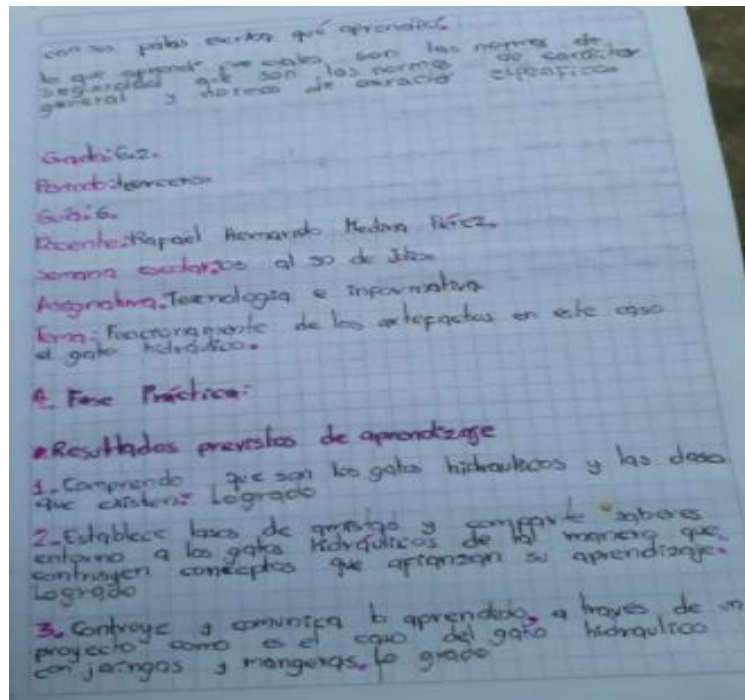 con sus palabras escriba qué aprendió.
lo que aprendi fue cuales son las normas de
seguridad que son las normas de carácter
general y normas de caracter especificas
Grado: 6.2.
Periodo: tercero.
Guia: 6.
Docente: Rafael Hernando Medina Pérez.
semana al 30 de
Asignatura: Tecnologia e informativa
Tema: Funcionamiento de los artefactos en este caso
el gato hidráulico.
A. Fase Práctica:
Resultados previstos de aprendizaje
1. Comprendo que son los gatos hidraulicos y las clases
que existen: Logrado
2. Establece lazos de amistad y comparte saberes
entorno a los gatos hidráulicos de tal manera que,
contruyen conceptos que afianzan su aprendizaje.
Logrado
3. Contruye y comunica lo aprendido, a traves de un
proyecto como es el caso del gato hidraulico
con jeringas y mangeras. lo grado